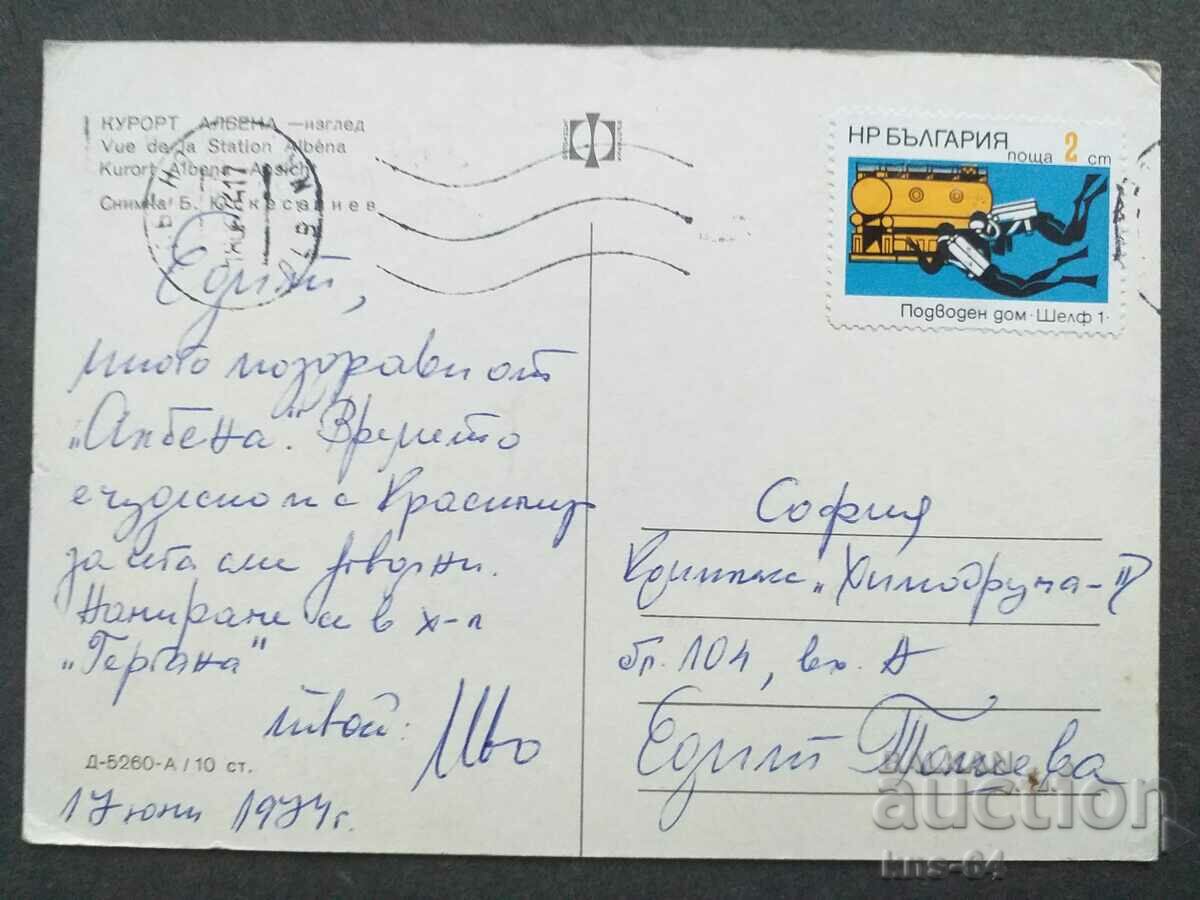 КУРОРТ АЛБЕНА —изглед
Vue de la Station Albéna
Kurort Albena - Ansicht
Снимка Б.
Едит,
много поздрави от
„Албена". Времето
е чудесно и с Красимир
за сега сме доволни.
Намираме се в х-л
„Гергана"
твой: Иво
Д-5260-А/10 ст.
17 юни 1974 г.
НР БЪЛГАРИЯ
поща 2 ст
Подводен дом · Шелф 1 ·
София
Комплекс „Хиподрума-II"
бл. 104, вх. А
Едит
BALKAN
auction
kns-64